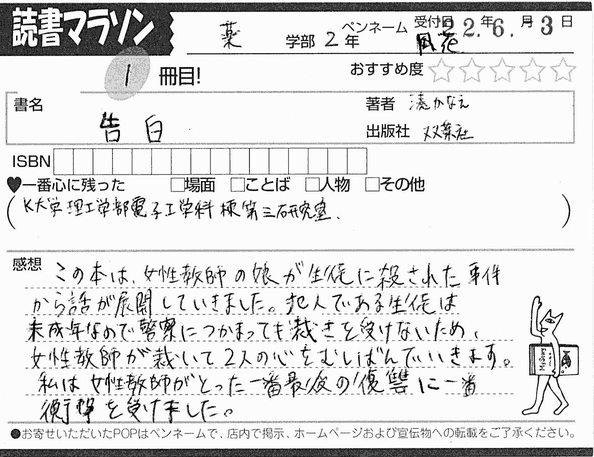 読書マラソン
薬 学部 2年 ペンネーム 風花 受付日 22年6月3日
1 冊目! おすすめ度 ☆☆☆☆☆
書名 告白
著者 湊かなえ
出版社 双葉社
ISBN
♥一番心に残った □場面 □ことば □人物 □その他
(K大学理工学部電子工学科棟第三研究室.)
感想
この本は、女性教師の娘が生徒に殺された事件
から話が展開していきました。犯人である生徒は
未成年なので警察につかまっても裁きを受けないため、
女性教師が裁いて2人の心をむしばんでいきます。
私は女性教師がとった一番最後の復讐に一番
衝撃を受けました。
●お寄せいただいたPOPはペンネームで、店内で掲示、ホームページおよび宣伝物への転載をご了承ください。